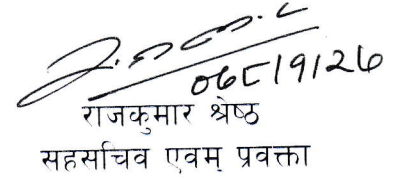 ०६८/९/२६
राजकुमार श्रेष्ठ
सहसचिव एवम् प्रवक्ता